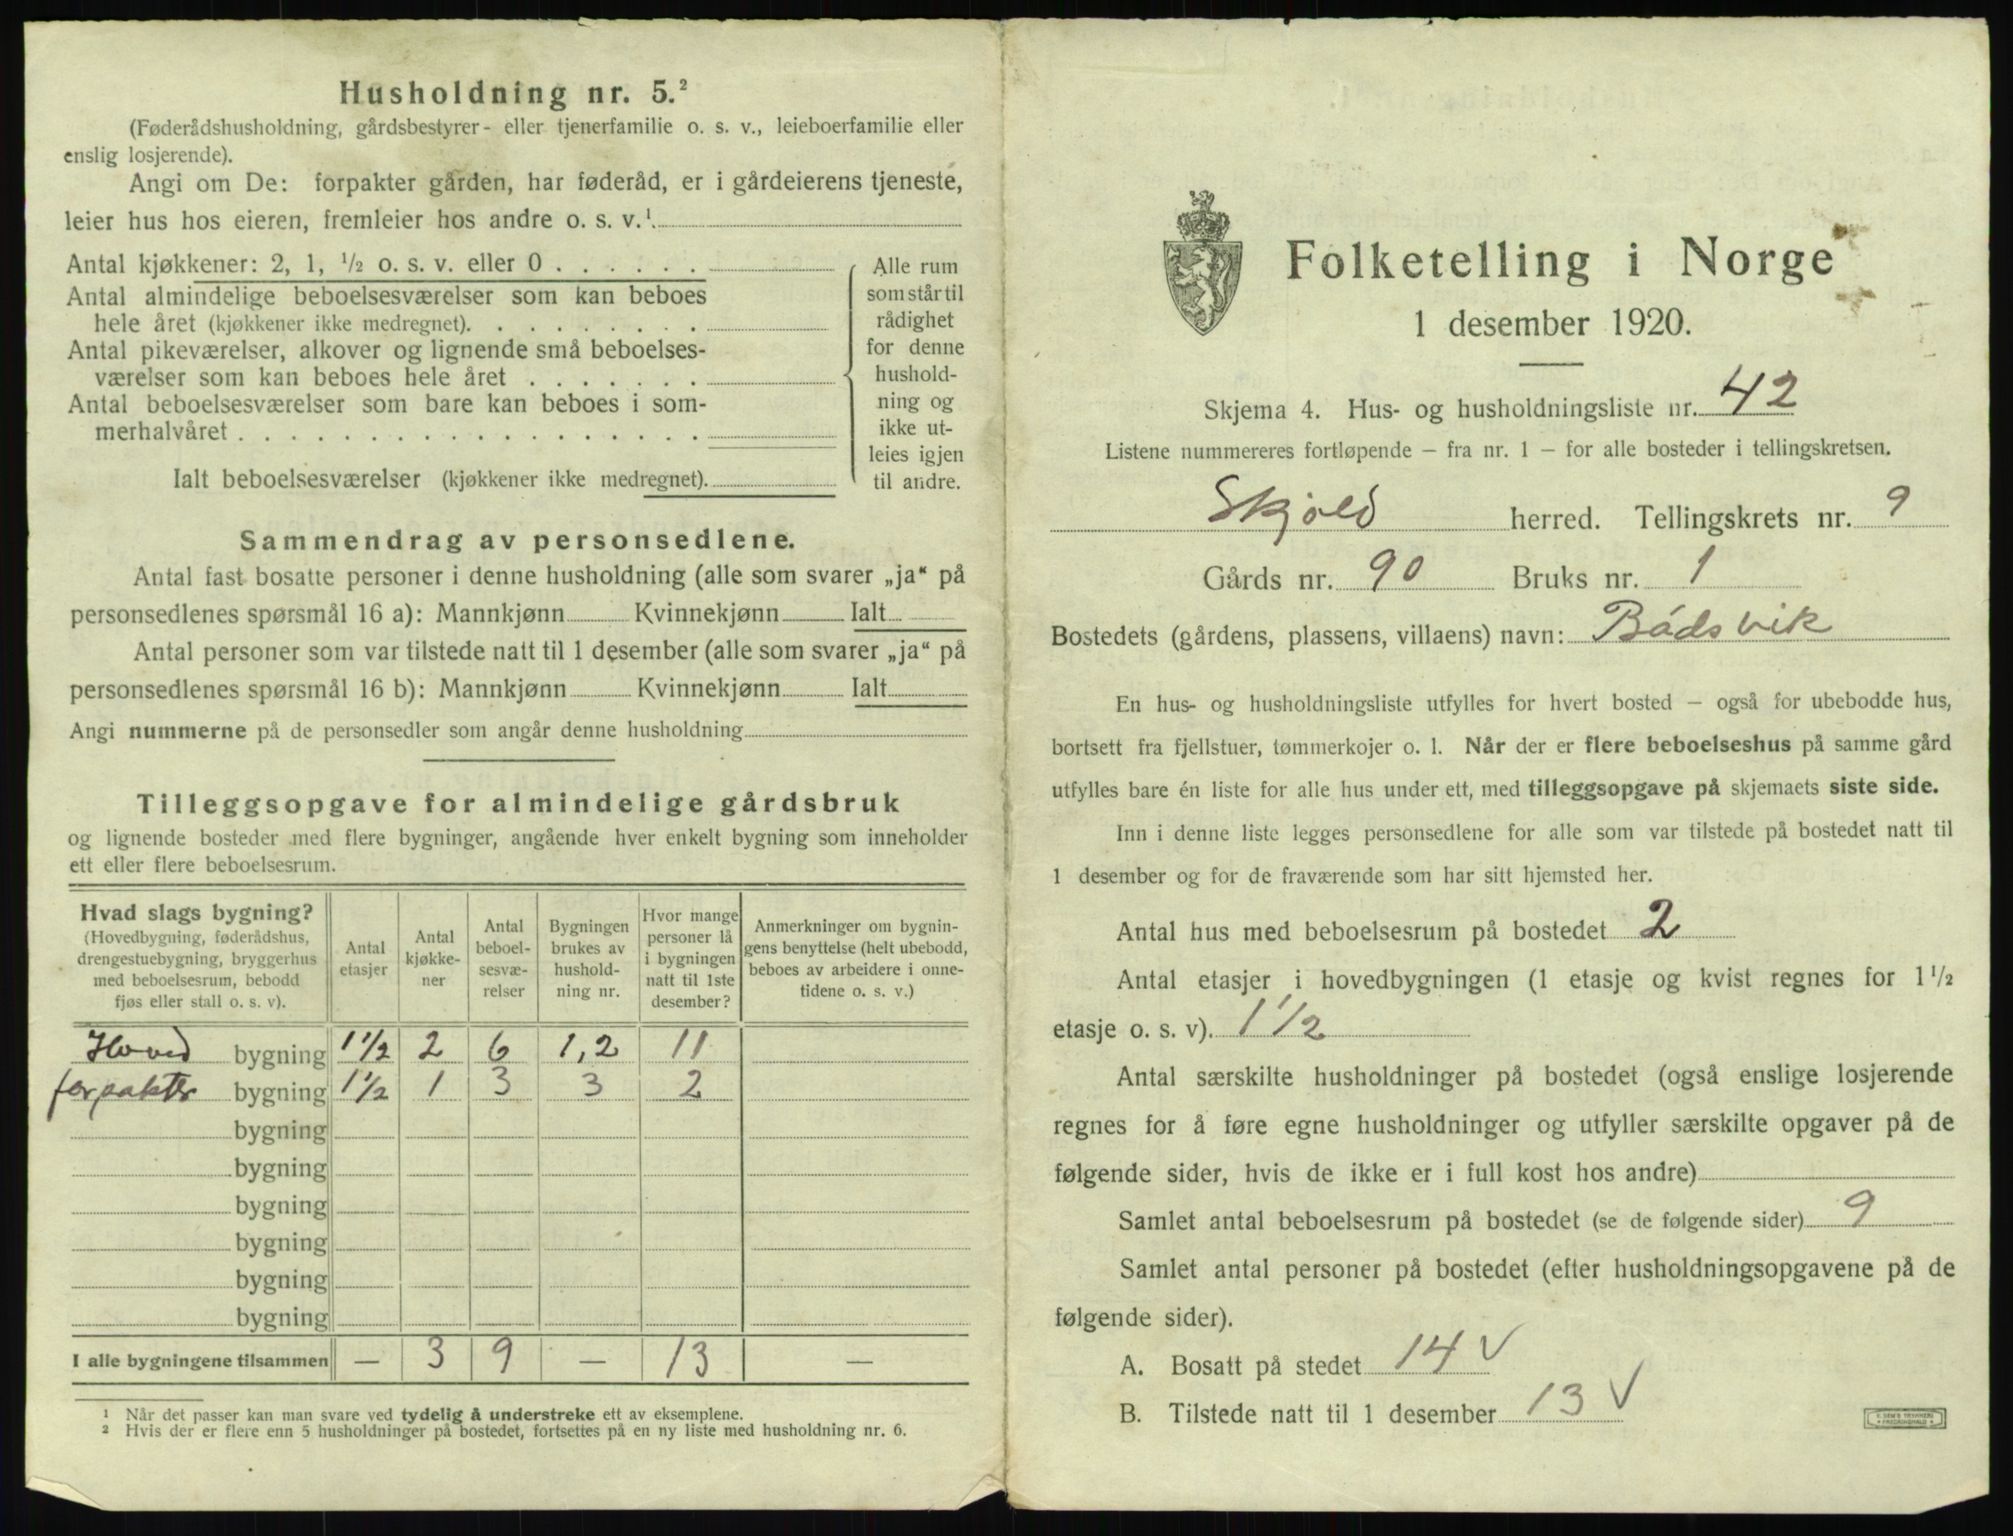 Husholdning nr. 5.²
(Føderådshusholdning, gårdsbestyrer- eller tjenerfamilie o. s. v., leieboerfamilie eller
enslig losjerende).
Angi om De: forpakter gården, har føderåd, er i gårdeierens tjeneste,
leier hus hos eieren, fremleier hos andre o. s. v.¹
Antal kjøkkener: 2, 1, ¹/₂ o. s. v. eller 0 . . . . . .
Antal almindelige beboelsesværelser som kan beboes
hele året (kjøkkener ikke medregnet). . . . . . . . .
Antal pikeværelser, alkover og lignende små beboelses-
værelser som kan beboes hele året . . . . . . .
Antal beboelsesværelser som bare kan beboes i som-
merhalvåret . . . . . . . . . . . . . . . . . .
Ialt beboelsesværelser (kjøkkener ikke medregnet).
Alle rum
som står til
rådighet
for denne
hushold-
ning og
ikke ut-
leies igjen
til andre.
Sammendrag av personsedlene.
Antal fast bosatte personer i denne husholdning (alle som svarer „ja“ på
personsedlenes spørsmål 16 a): Mannkjønn Kvinnekjønn Ialt
Antal personer som var tilstede natt til 1 desember (alle som svarer „ja“ på
personsedlenes spørsmål 16 b): Mannkjønn Kvinnekjønn Ialt
Angi nummerne på de personsedler som angår denne husholdning
Tilleggsopgave for almindelige gårdsbruk
og lignende bosteder med flere bygninger, angående hver enkelt bygning som inneholder
ett eller flere beboelsesrum.
Hvad slags bygning?
(Hovedbygning, føderådshus,
drengestuebygning, bryggerhus
med beboelsesrum, bebodd
fjøs eller stall o. s. v).
Antal
etasjer
Antal
kjøkke-
ner
Antal
beboel-
sesvæ-
relser
Bygningen
brukes av
hushold-
ning nr.
Hvor mange
personer lå
i bygningen
natt til 1ste
desember?
Anmerkninger om bygnin-
gens benyttelse (helt ubebodd,
beboes av arbeidere i onne-
tidene o. s. v.)
Hoved bygning 1 1/2 2 6 1,2 11
forpakter bygning 1 1/2 1 3 3 2
bygning
bygning
bygning
bygning
bygning
bygning
I alle bygningene tilsammen — 3 9 — 13 —
¹ Når det passer kan man svare ved tydelig å understreke ett av eksemplene.
² Hvis der er flere enn 5 husholdninger på bostedet, fortsettes på en ny liste med husholdning nr. 6.
Folketelling i Norge
1 desember 1920.
Skjema 4. Hus- og husholdningsliste nr. 42
Listene nummereres fortløpende – fra nr. 1 – for alle bosteder i tellingskretsen.
Skjold herred. Tellingskrets nr. 9
Gårds nr. 90 Bruks nr. 1
Bostedets (gårdens, plassens, villaens) navn: Bådsvik
En hus- og husholdningsliste utfylles for hvert bosted – også for ubebodde hus,
bortsett fra fjellstuer, tømmerkojer o. l. Når der er flere beboelseshus på samme gård
utfylles bare én liste for alle hus under ett, med tilleggsopgave på skjemaets siste side.
Inn i denne liste legges personsedlene for alle som var tilstede på bostedet natt til
1 desember og for de fraværende som har sitt hjemsted her.
Antal hus med beboelsesrum på bostedet 2
Antal etasjer i hovedbygningen (1 etasje og kvist regnes for 1 ¹/₂
etasje o. s. v). 1 1/2
Antal særskilte husholdninger på bostedet (også enslige losjerende
regnes for å føre egne husholdninger og utfyller særskilte opgaver på de
følgende sider, hvis de ikke er i full kost hos andre)
Samlet antal beboelsesrum på bostedet (se de følgende sider) 9
Samlet antal personer på bostedet (efter husholdningsopgavene på de
følgende sider).
A. Bosatt på stedet 14 V
B. Tilstede natt til 1 desember 13 V